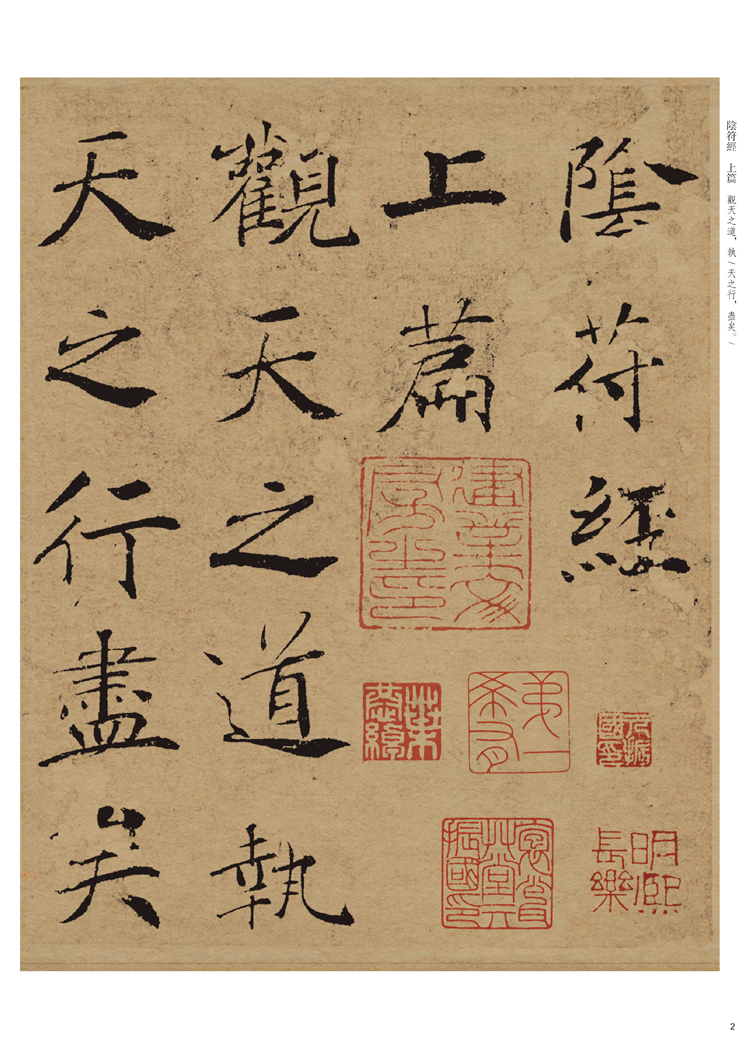 陰符經
上篇
觀天之道執
天之行盡矣
陰符經 上篇 觀天之道，執/天之行，盡矣。/
明熙
長樂
2